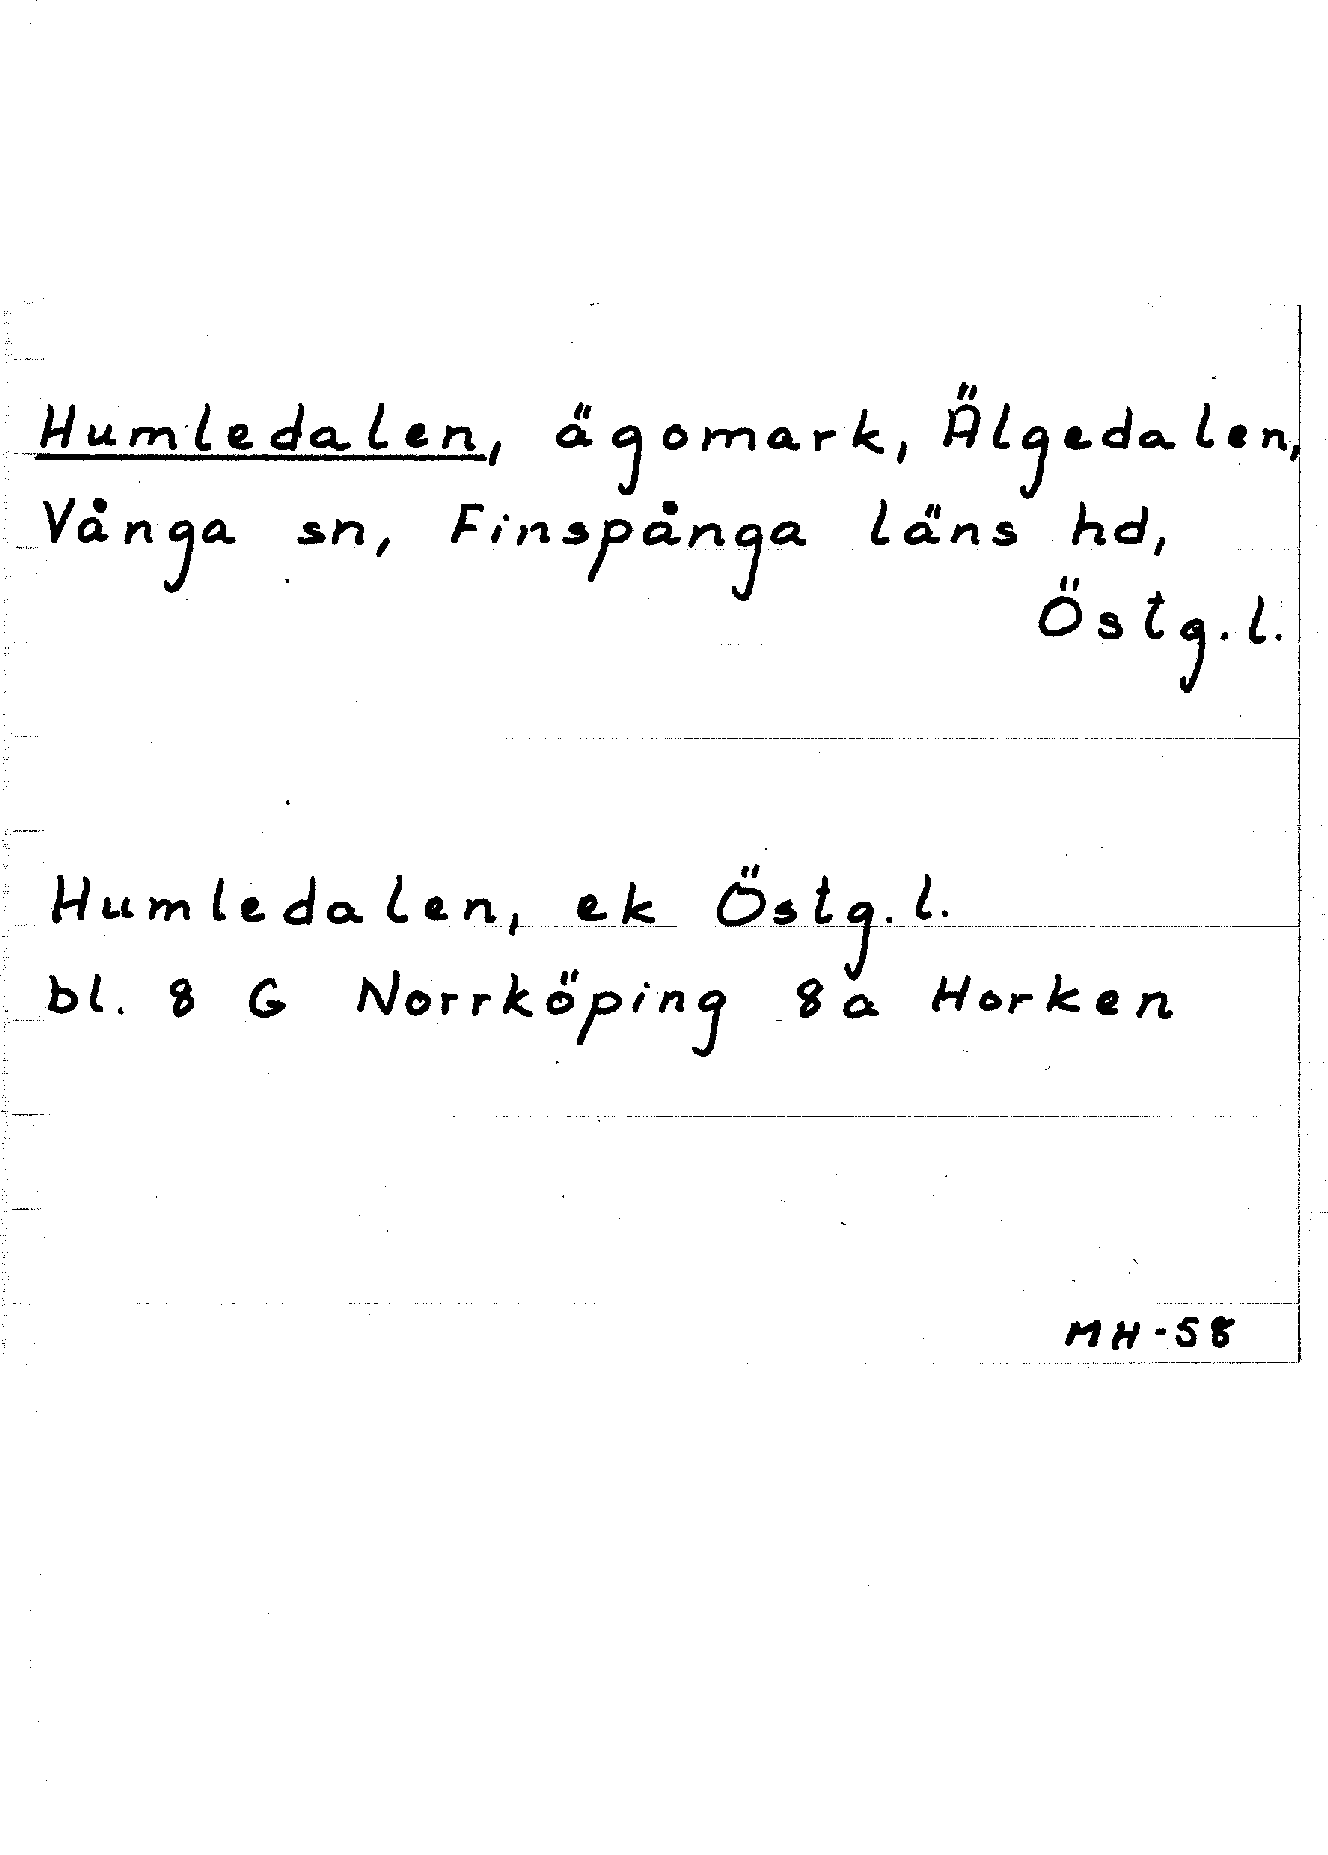 Humledalen, ägomark, Älgedalen,
Vånga sn, Finspånga läns hd,
Östg.l.
Humledalen, ek Östg.l.
bl. 8 G Norrköping 8a Horken
MH-58